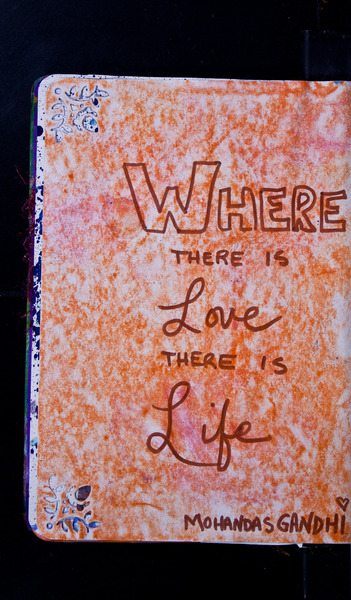 WHERE
THERE IS
Love
THERE IS
Life
MOHANDAS GANDHI